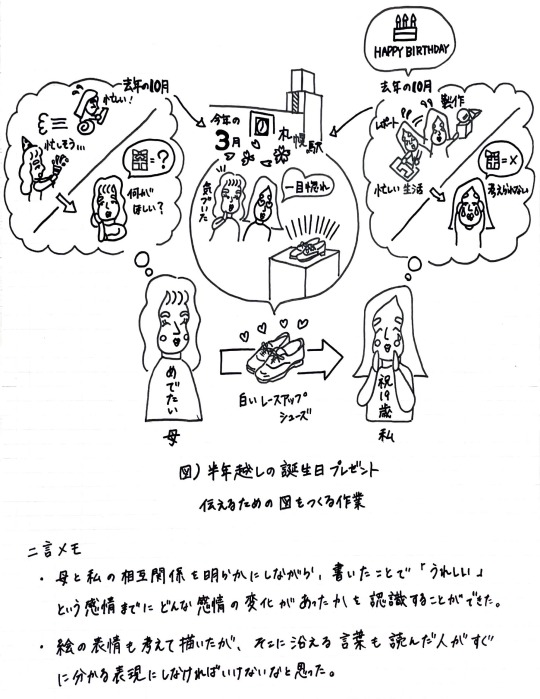 HAPPY BIRTHDAY
去年の10月
忙しい!
忙しそう…
=?
何が
ほしい?
今年の
3月
札幌駅
気づいた
一目惚れ
去年の10月
製作
レポート
忙しい生活
=×
考えられない
めでたい
母
白いレースアップ
シューズ
祝19歳
私
図) 半年越しの誕生日プレゼント
伝えるための図をつくる作業
二言メモ
・母と私の相互関係を明らかにしながら、書いたことで「うれしい」
という感情までにどんな感情の変化があったかを認識することができた。
・絵の表情も考えて描いたが、そこに沿える言葉も読んだ人がすぐ
に分かる表現にしなければいけないなと思った。